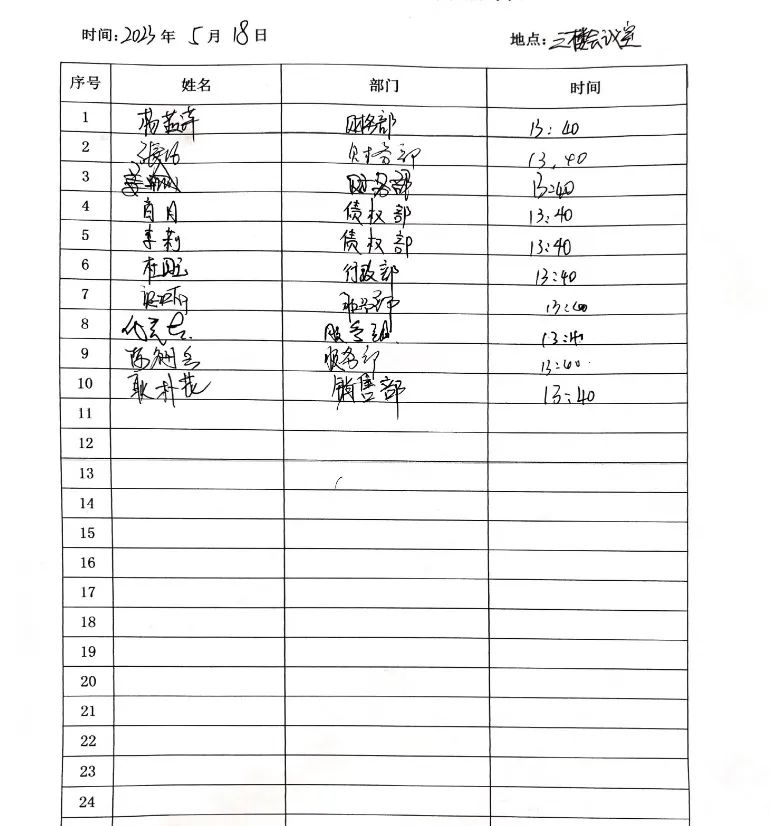 时间:2023年 5月18日 地点:三楼会议室
序号 姓名 部门 时间
1 财务部 13:40
2 张 财务部 13.40
3 姜 财务部 13:40
4 肖月 债权部 13:40
5 李莉 债权部 13:40
6 杜 行政部 13:40
7 13:40
8 代 服务部 13:40
9 陈 服务部 13:40
10 耿朴花 销售部 13:40
11
12
13
14
15
16
17
18
19
20
21
22
23
24